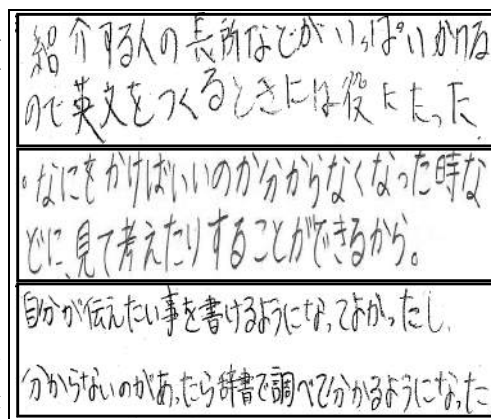 紹介する人の長所などがいっぱいかける
ので英文をつくるときには役にたった
・なにをかけばいいのか分からなくなった時な
どに、見て考えたりすることができるから。
自分が伝えたい事を書けるようになってよかったし、
分からないのがあったら辞書で調べて分かるようになった